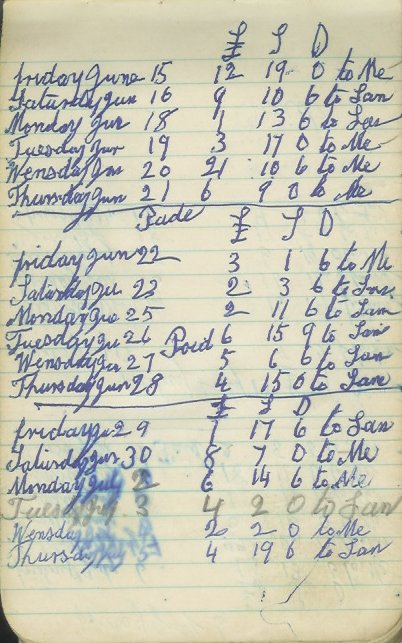 £ S D
friday June 15 12 19 0 to Me
Saturday Jun 16 9 10 6 to San
Monday Jun 18 1 13 6 to San
Tuesday Jun 19 3 17 0 to Me
Wensday Jun 20 21 10 6 to Me
Thursday Jun 21 6 9 0 to Me
Pade £ S D
friday Jun 22 3 1 6 to Me
Saturday Ju 23 2 3 6 to
Monday Ju 25 2 11 6 to Sam
Tuesday Ju 26 Poid 6 15 9 to San
Wensday Ju 27 5 6 6 to San
Thursday Jun 28 4 15 0 to Sam
£ S D
friday Ju 29 1 17 6 to San
Saturday Jun 30 8 7 0 to Me
Monday July 2 6 14 6 to Me
Tuesday 3 4 2 0 to San
Wensday 2 2 0 to Me
Thursday 5 4 19 6 to San